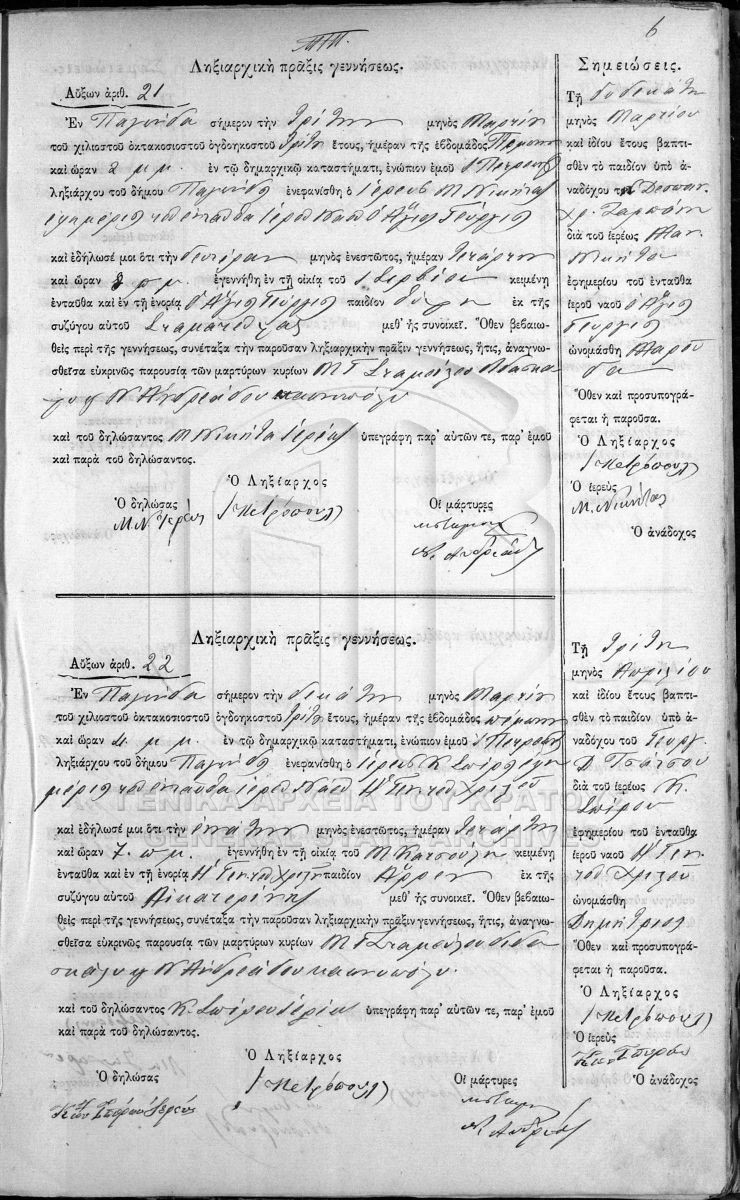 6
Ληξιαρχικὴ πρᾶξις γεννήσεως.
Αὔξων ἀριθ. 21
Ἐν Παγώνδα σήμερον τὴν Τρίτην μηνὸς Μαρτίου
τοῦ χιλιοστοῦ ὀκτακοσιοστοῦ ὀγδοηκοστοῦ Τρίτου ἔτους, ἡμέραν τῆς ἑβδομάδος Πέμπτην
καὶ ὥραν 2 μ μ. ἐν τῷ δημαρχικῷ καταστήματι, ἐνώπιον ἐμοῦ Ι Πετροπούλου
ληξιάρχου τοῦ δήμου ἐνεφανίσθη ὁ ἱερεὺς Μ. Νικήτας
ἐφημέριος τοῦ ἐνταῦθα ἱεροῦ Ναοῦ ὁ Ἅγιος Γεώργιος
καὶ ἐδήλωσέ μοι ὅτι τὴν δευτέραν μηνὸς ἐνεστῶτος, ἡμέραν Τετάρτην
καὶ ὥραν π μ. ἐγεννήθη ἐν τῇ οἰκίᾳ τοῦ κειμένῃ
ἐνταῦθα καὶ ἐν τῇ ἐνορίᾳ ὁ Ἅγιος Γεώργιος παιδίον θῆλυ ἐκ τῆς
συζύγου αὐτοῦ μεθ' ἧς συνοικεῖ. Ὅθεν βεβαιω-
θεὶς περὶ τῆς γεννήσεως, συνέταξα τὴν παροῦσαν ληξιαρχικὴν πρᾶξιν γεννήσεως, ἥτις, ἀναγνω-
σθεῖσα εὐκρινῶς παρουσίᾳ τῶν μαρτύρων κυρίων Μ Γ
Ν Ἀνδρεάδου
καὶ τοῦ δηλώσαντος Μ Νικήτα ἱερέως ὑπεγράφη παρ' αὐτῶν τε, παρ' ἐμοῦ
καὶ παρὰ τοῦ δηλώσαντος.
Ὁ Ληξίαρχος
Ὁ δηλώσας Ι Πετρόπουλος Οἱ μάρτυρες
Μ. Ν Ἱερεύς
Ν. Ἀνδρεάδης
Σημειώσεις.
Τῇ δωδεκάτῃ
μηνὸς Μαρτίου
καὶ ἰδίου ἔτους βαπτι-
σθὲν τὸ παιδίον ὑπὸ ἀ-
ναδόχου
Χρ.
διὰ τοῦ ἱερέως
Νικήτα
ἐφημερίου τοῦ ἐνταῦθα
ἱεροῦ ναοῦ ὁ Ἅγιος
Γεώργιος
ὠνομάσθη
Ὅθεν καὶ προσυπογρά-
φεται ἡ παροῦσα.
Ὁ Ληξίαρχος
Ι Πετρόπουλος
Ὁ ἱερεὺς
Μ. Νικήτας
Ὁ ἀνάδοχος
Ληξιαρχικὴ πρᾶξις γεννήσεως.
Αὔξων ἀριθ. 22
Ἐν Παγώνδα σήμερον τὴν δεκάτην μηνὸς Μαρτίου
τοῦ χιλιοστοῦ ὀκτακοσιοστοῦ ὀγδοηκοστοῦ Τρίτου ἔτους, ἡμέραν τῆς ἑβδομάδος πέμπτην
καὶ ὥραν 4 μ μ. ἐν τῷ δημαρχικῷ καταστήματι, ἐνώπιον ἐμοῦ Ι Πετροπούλου
ληξιάρχου τοῦ δήμου ἐνεφανίσθη ὁ ἱερεὺς Κ. Σπύρου ἐφη
μέριος τοῦ ἐνταῦθα ἱεροῦ Ναοῦ Ἡ Γεν τοῦ Χριστοῦ
καὶ ἐδήλωσέ μοι ὅτι τὴν ἐνάτην μηνὸς ἐνεστῶτος, ἡμέραν Τετάρτην
καὶ ὥραν 7. π μ. ἐγεννήθη ἐν τῇ οἰκίᾳ τοῦ κειμένῃ
ἐνταῦθα καὶ ἐν τῇ ἐνορίᾳ Ἡ Γεν τοῦ Χριστοῦ παιδίον ἄρρεν ἐκ τῆς
συζύγου αὐτοῦ Αἰκατερίνης μεθ' ἧς συνοικεῖ. Ὅθεν βεβαιω-
θεὶς περὶ τῆς γεννήσεως, συνέταξα τὴν παροῦσαν ληξιαρχικὴν πρᾶξιν γεννήσεως, ἥτις, ἀναγνω-
σθεῖσα εὐκρινῶς παρουσίᾳ τῶν μαρτύρων κυρίων Μ Γ
Ν Ἀνδρεάδου
καὶ τοῦ δηλώσαντος Κ. Σπύρου ἱερέως ὑπεγράφη παρ' αὐτῶν τε, παρ' ἐμοῦ
καὶ παρὰ τοῦ δηλώσαντος.
Ὁ Ληξίαρχος
Ὁ δηλώσας Ι Πετρόπουλος Οἱ μάρτυρες
Σπύρου Ἱερεύς
Ν. Ἀνδρεάδης
Τῇ Τρίτῃ
μηνὸς Ἀπριλίου
καὶ ἰδίου ἔτους βαπτι-
σθὲν τὸ παιδίον ὑπὸ ἀ-
ναδόχου τοῦ Γεωργ.
Δ.
διὰ τοῦ ἱερέως Κ.
Σπύρου
ἐφημερίου τοῦ ἐνταῦθα
ἱεροῦ ναοῦ Ἡ Γεν.
τοῦ Χριστοῦ
ὠνομάσθη
Δημήτριος
Ὅθεν καὶ προσυπογρά-
φεται ἡ παροῦσα.
Ὁ Ληξίαρχος
Ι Πετρόπουλος
Ὁ ἱερεὺς
Σπύρου
Ὁ ἀνάδοχος
ΓΕΝΙΚΑ ΑΡΧΕΙΑ ΤΟΥ ΚΡΑΤΟΥΣ
GENERAL STATE ARCHIVES